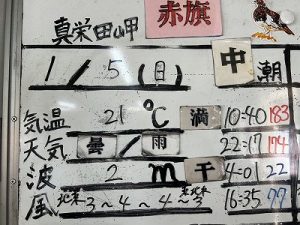 赤旗
真栄田岬
1/5(日) 中潮
気温 21℃ 満 10:40 183
天気 曇/雨 22:17 174
波 2m 干 4:01 22
風 北東 3~4~4~3 16:35 77